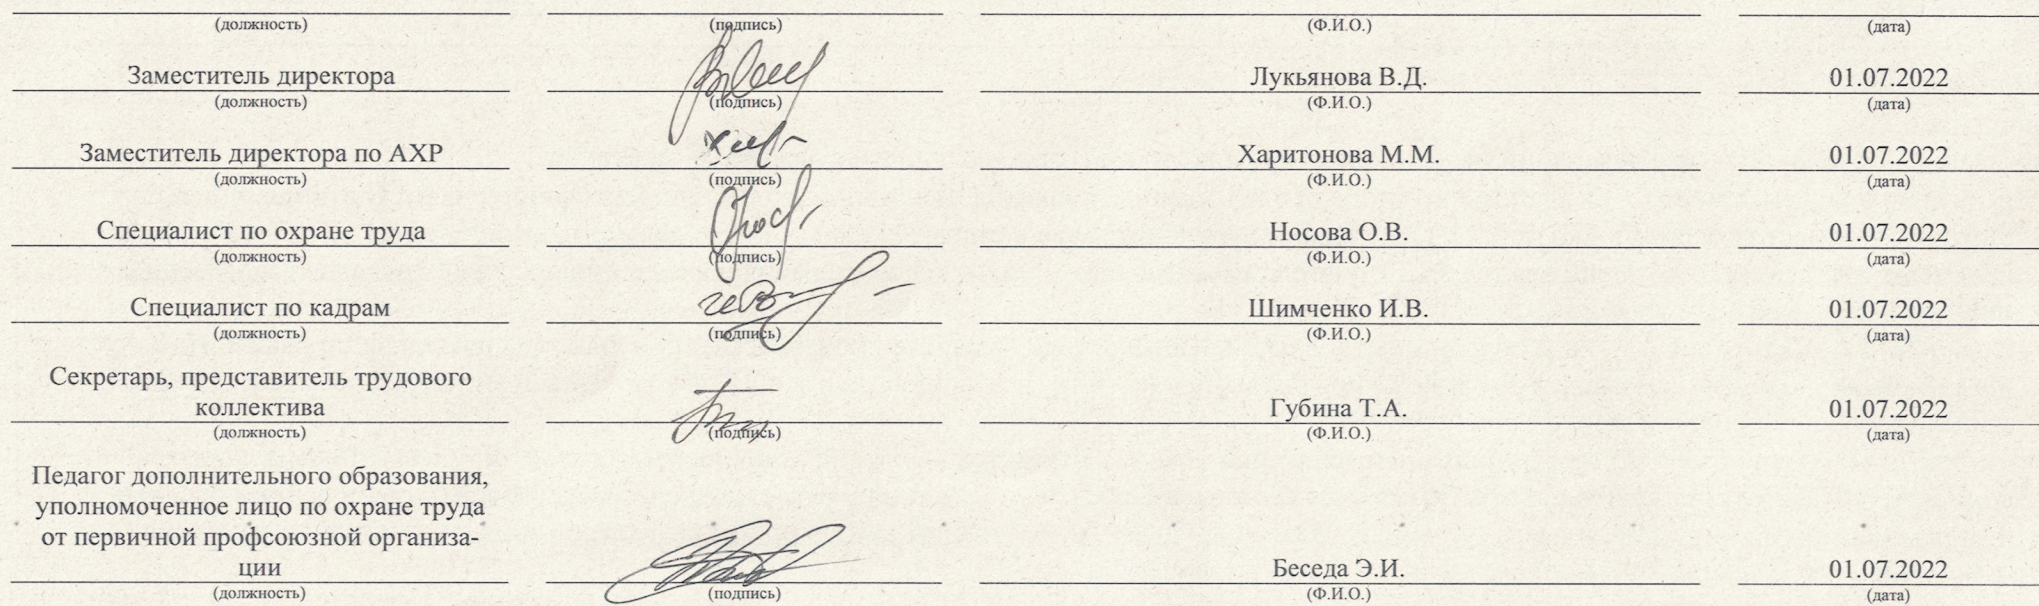 (должность) (подпись) (Ф.И.О.) (дата)
Заместитель директора Лукьянова В.Д. 01.07.2022
(должность) (подпись) (Ф.И.О.) (дата)
Заместитель директора по АХР Харитонова М.М. 01.07.2022
(должность) (подпись) (Ф.И.О.) (дата)
Специалист по охране труда Носова О.В. 01.07.2022
(должность) (подпись) (Ф.И.О.) (дата)
Специалист по кадрам Шимченко И.В. 01.07.2022
(должность) (подпись) (Ф.И.О.) (дата)
Секретарь, представитель трудового
коллектива Губина Т.А. 01.07.2022
(должность) (подпись) (Ф.И.О.) (дата)
Педагог дополнительного образования,
уполномоченное лицо по охране труда
от первичной профсоюзной организа-
ции Беседа Э.И. 01.07.2022
(должность) (подпись) (Ф.И.О.) (дата)